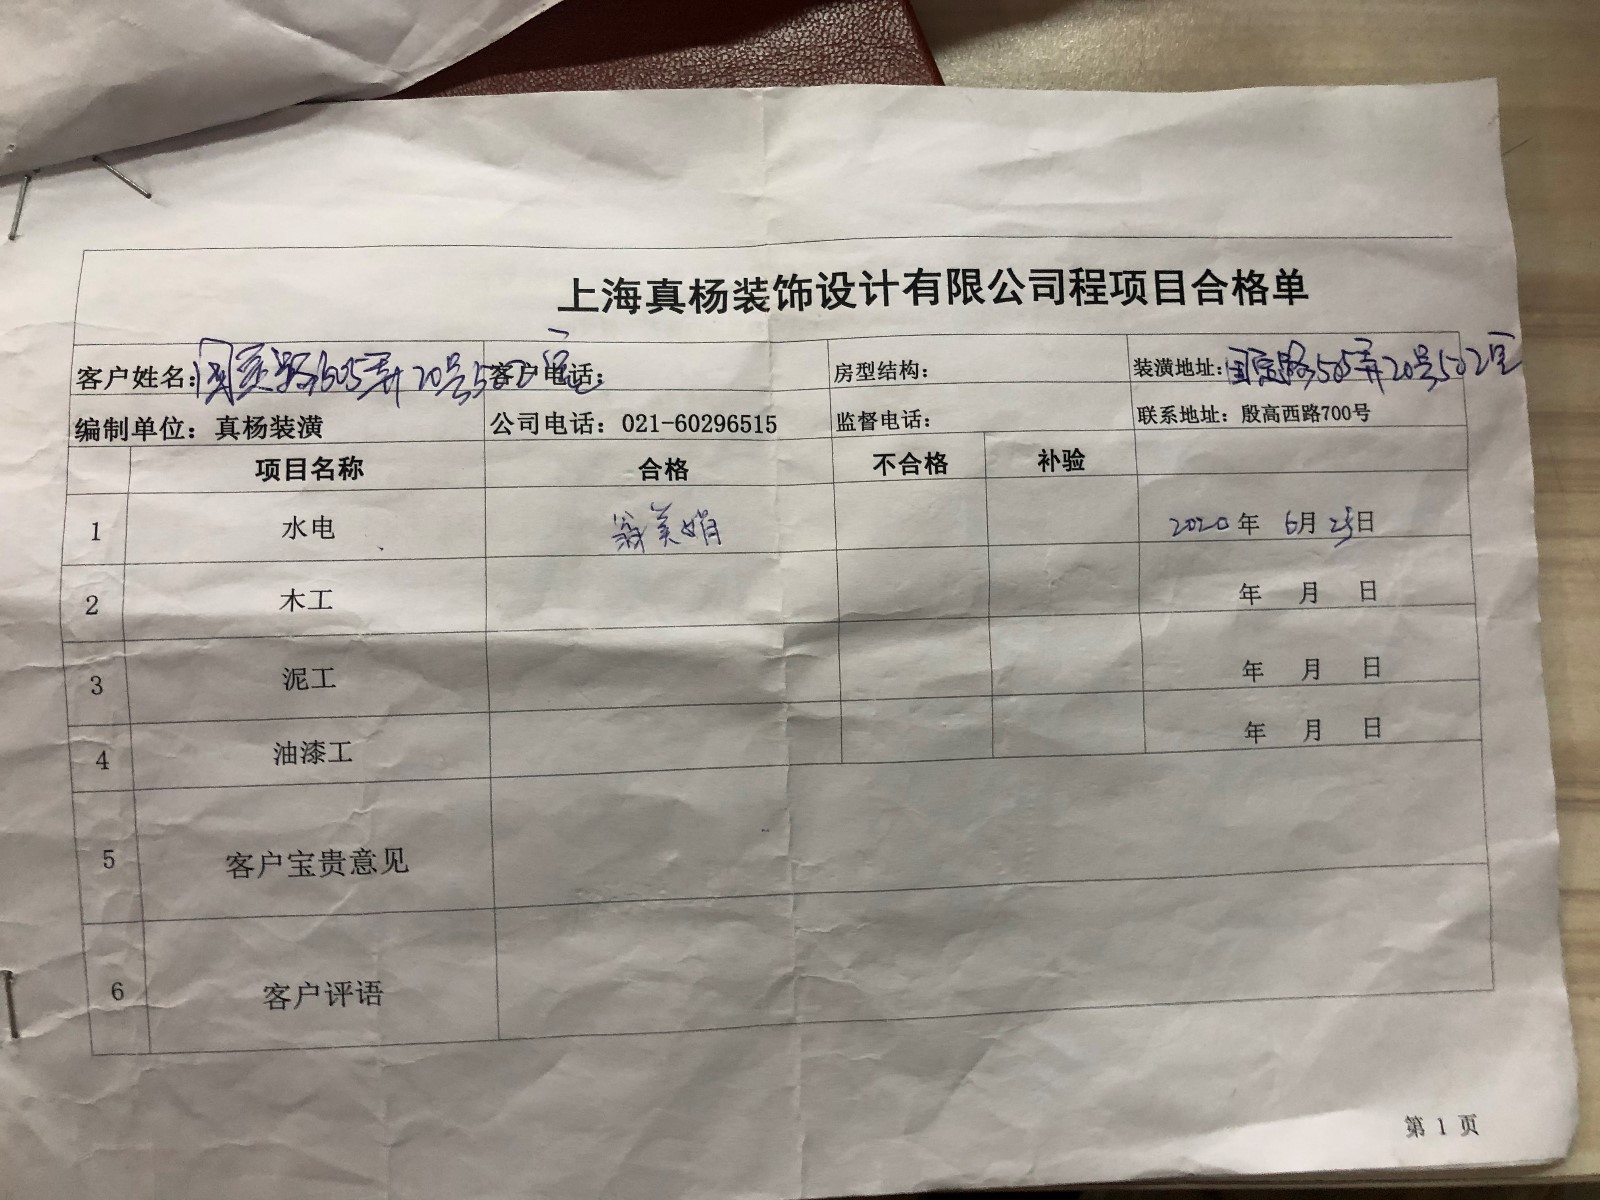 上海真杨装饰设计有限公司程项目合格单
客户姓名：国京路505弄20号502室 客户电话： 房型结构： 装潢地址：国京路505弄20号502室
编制单位：真杨装潢 公司电话：021-60296515 监督电话： 联系地址：殷高西路700号
项目名称 合格 不合格 补验
1 水电 翁美娟 2020年 6月25日
2 木工 年 月 日
3 泥工 年 月 日
4 油漆工 年 月 日
5 客户宝贵意见
6 客户评语
第 1 页